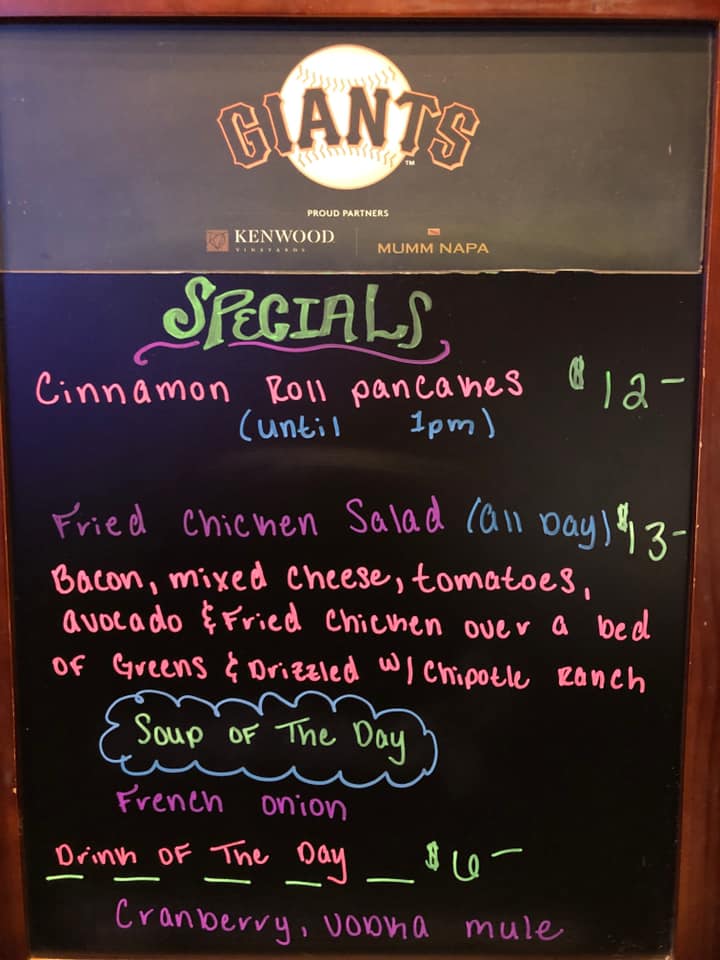 GIANTS
TM
PROUD PARTNERS
KENWOOD
VINEYARDS
MUMM NAPA
SPECIALS
Cinnamon Roll pancakes $12-
(until 1pm)
Fried Chicken Salad (All Day) $13-
Bacon, mixed cheese, tomatoes,
avocado & Fried Chicken over a bed
OF Greens & Drizzled w/ Chipotle Ranch
Soup OF The Day
French onion
Drink OF The Day $6-
Cranberry, vodka mule